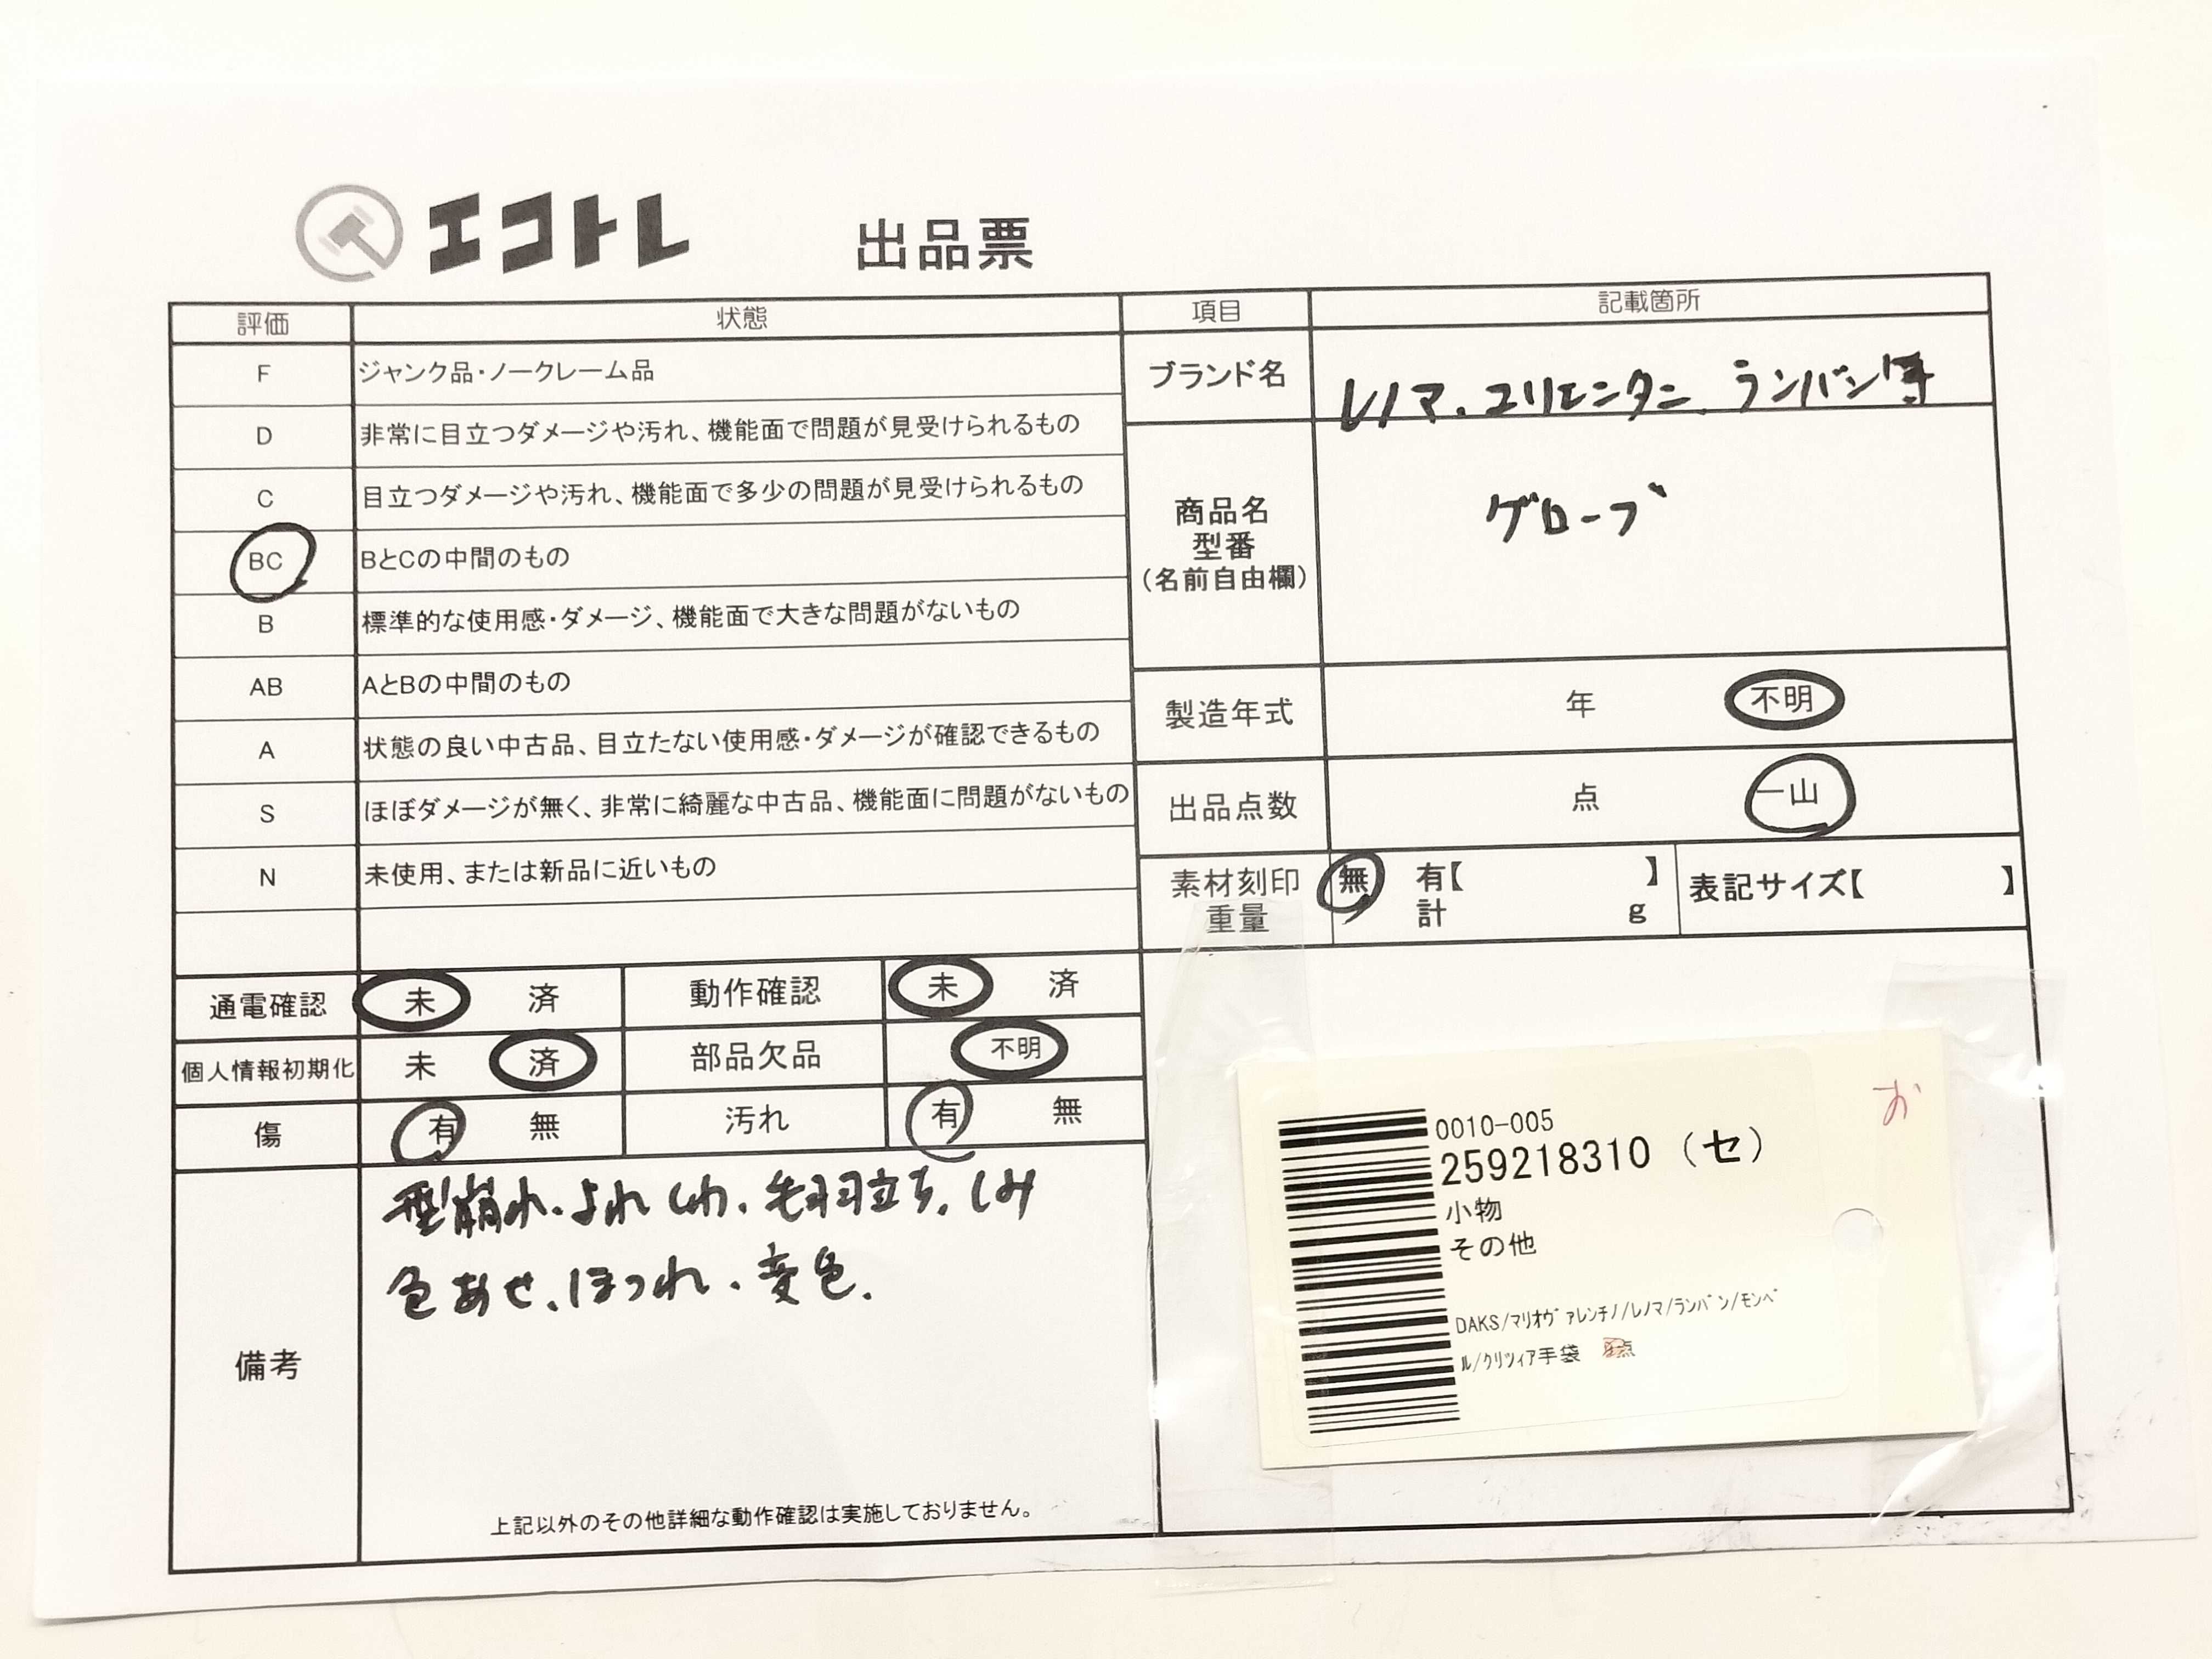 エコトレ 出品票
評価 状態
F ジャンク品・ノークレーム品
D 非常に目立つダメージや汚れ、機能面で問題が見受けられるもの
C 目立つダメージや汚れ、機能面で多少の問題が見受けられるもの
BC BとCの中間のもの
B 標準的な使用感・ダメージ、機能面で大きな問題がないもの
AB AとBの中間のもの
A 状態の良い中古品、目立たない使用感・ダメージが確認できるもの
S ほぼダメージが無く、非常に綺麗な中古品、機能面に問題がないもの
N 未使用、または新品に近いもの
項目 記載箇所
ブランド名 レノマ、ユリエンタニ、ランバン等
商品名
型番
(名前自由欄)
グローブ
製造年式 年 不明
出品点数 点 一山
素材刻印 無 有【 】 表記サイズ【 】
重量 計 g
通電確認 未 済 動作確認 未 済
個人情報初期化 未 済 部品欠品 不明
傷 有 無 汚れ 有 無
備考
型崩れ、よれ しわ、毛羽立ち、しみ
色あせ、ほつれ、変色、
上記以外のその他詳細な動作確認は実施しておりません。
お
0010-005
259218310 (セ)
小物
その他
DAKS/マリオヴァレンチノ/レノマ/ランバン/モンベ
ル/クリツィア手袋 点